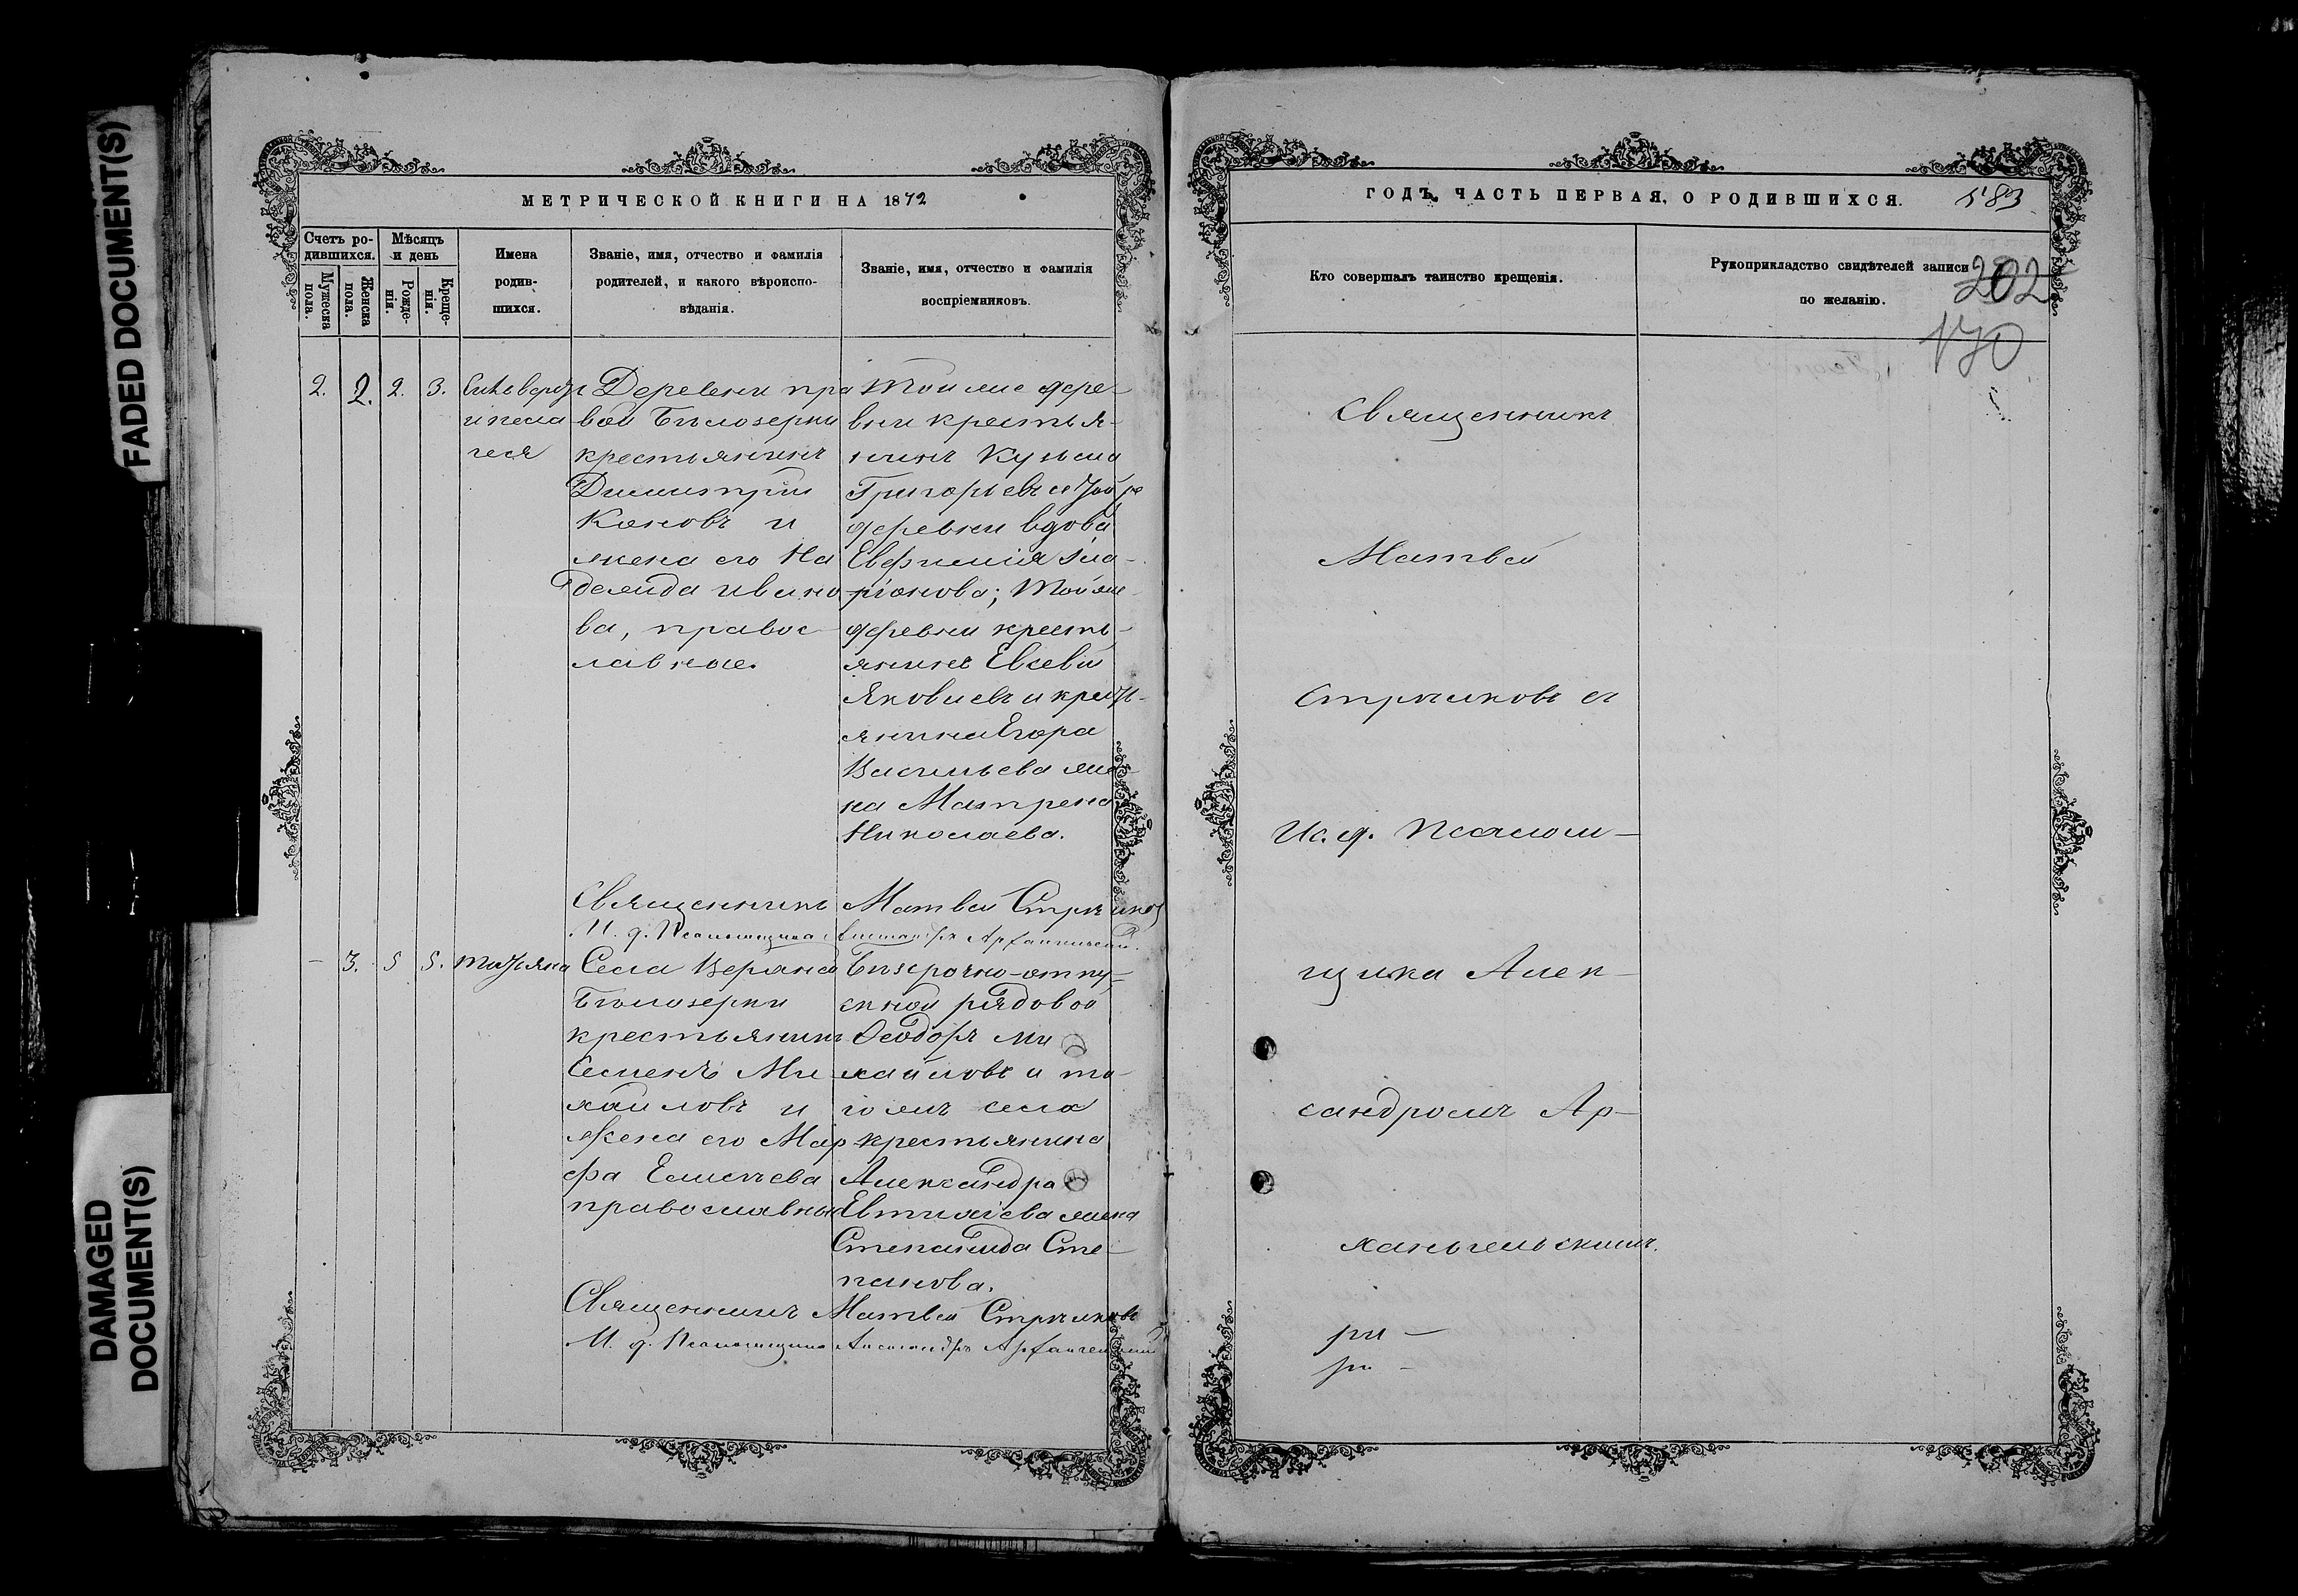 FADED DOCUMENT(S)
DAMAGED
DOCUMENT(S)
МЕТРИЧЕСКОЙ КНИГИ НА 1872
Счетъ ро-
дившихся.
Мужеска
пола.
Женска
пола.
Мѣсяцъ
и день
Рожде-
нія.
Креще-
нія.
Имена
родив-
шихся.
Званіе, имя, отчество и фамилія
родителей, и какого вѣроиспо-
вѣданія.
Званіе, имя, отчество и фамилія
воспріемниковъ.
2. 2. 2. 3.
Деревни пра
вой Бѣлозерки
крестьянинъ
Димитрій
Кановъ и
жена его На
дежда Ивано
ва, правос
лавные.
Той же дере-
вни крестья-
нинъ Кузьма
Григорьевъ и той же
деревни вдова
Евфимія Ила-
ріонова; Той же
деревни кресть-
янинъ Евсевій
Яковлевъ и кресть-
янина Егора
Васильева же-
на Матрена
Николаева.
Священникъ Матвей Стрѣлков
И. д. Псаломщика Александръ Архангельскій.
- 3. 5 5. Татьяна
Села Верхней
Бѣлозерки
крестьянинъ
Семенъ Ми
хайловъ и
жена его Мар
фа Елисѣева
православные
Безсрочно-отпу-
скной рядовой
Ѳеодоръ Ми
хайловъ и то
гожъ села
крестьянина
Александра
Евтихіева жена
Степанида Сте-
панова.
Священникъ Матвей Стрѣлковъ
И. д. Псаломщика Александръ Архангельскій
ГОДЪ, ЧАСТЬ ПЕРВАЯ, О РОДИВШИХСЯ.
583
Кто совершалъ таинство крещенія.
Рукоприкладство свидѣтелей записи
по желанію.
202
170
Священникъ
Матвей
Стрѣлковъ съ
Ис. д. Псалом-
щика Алек-
сандромъ Ар-
хангельскимъ.